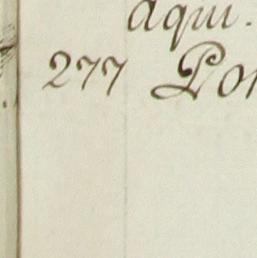 aqui.
277 Por